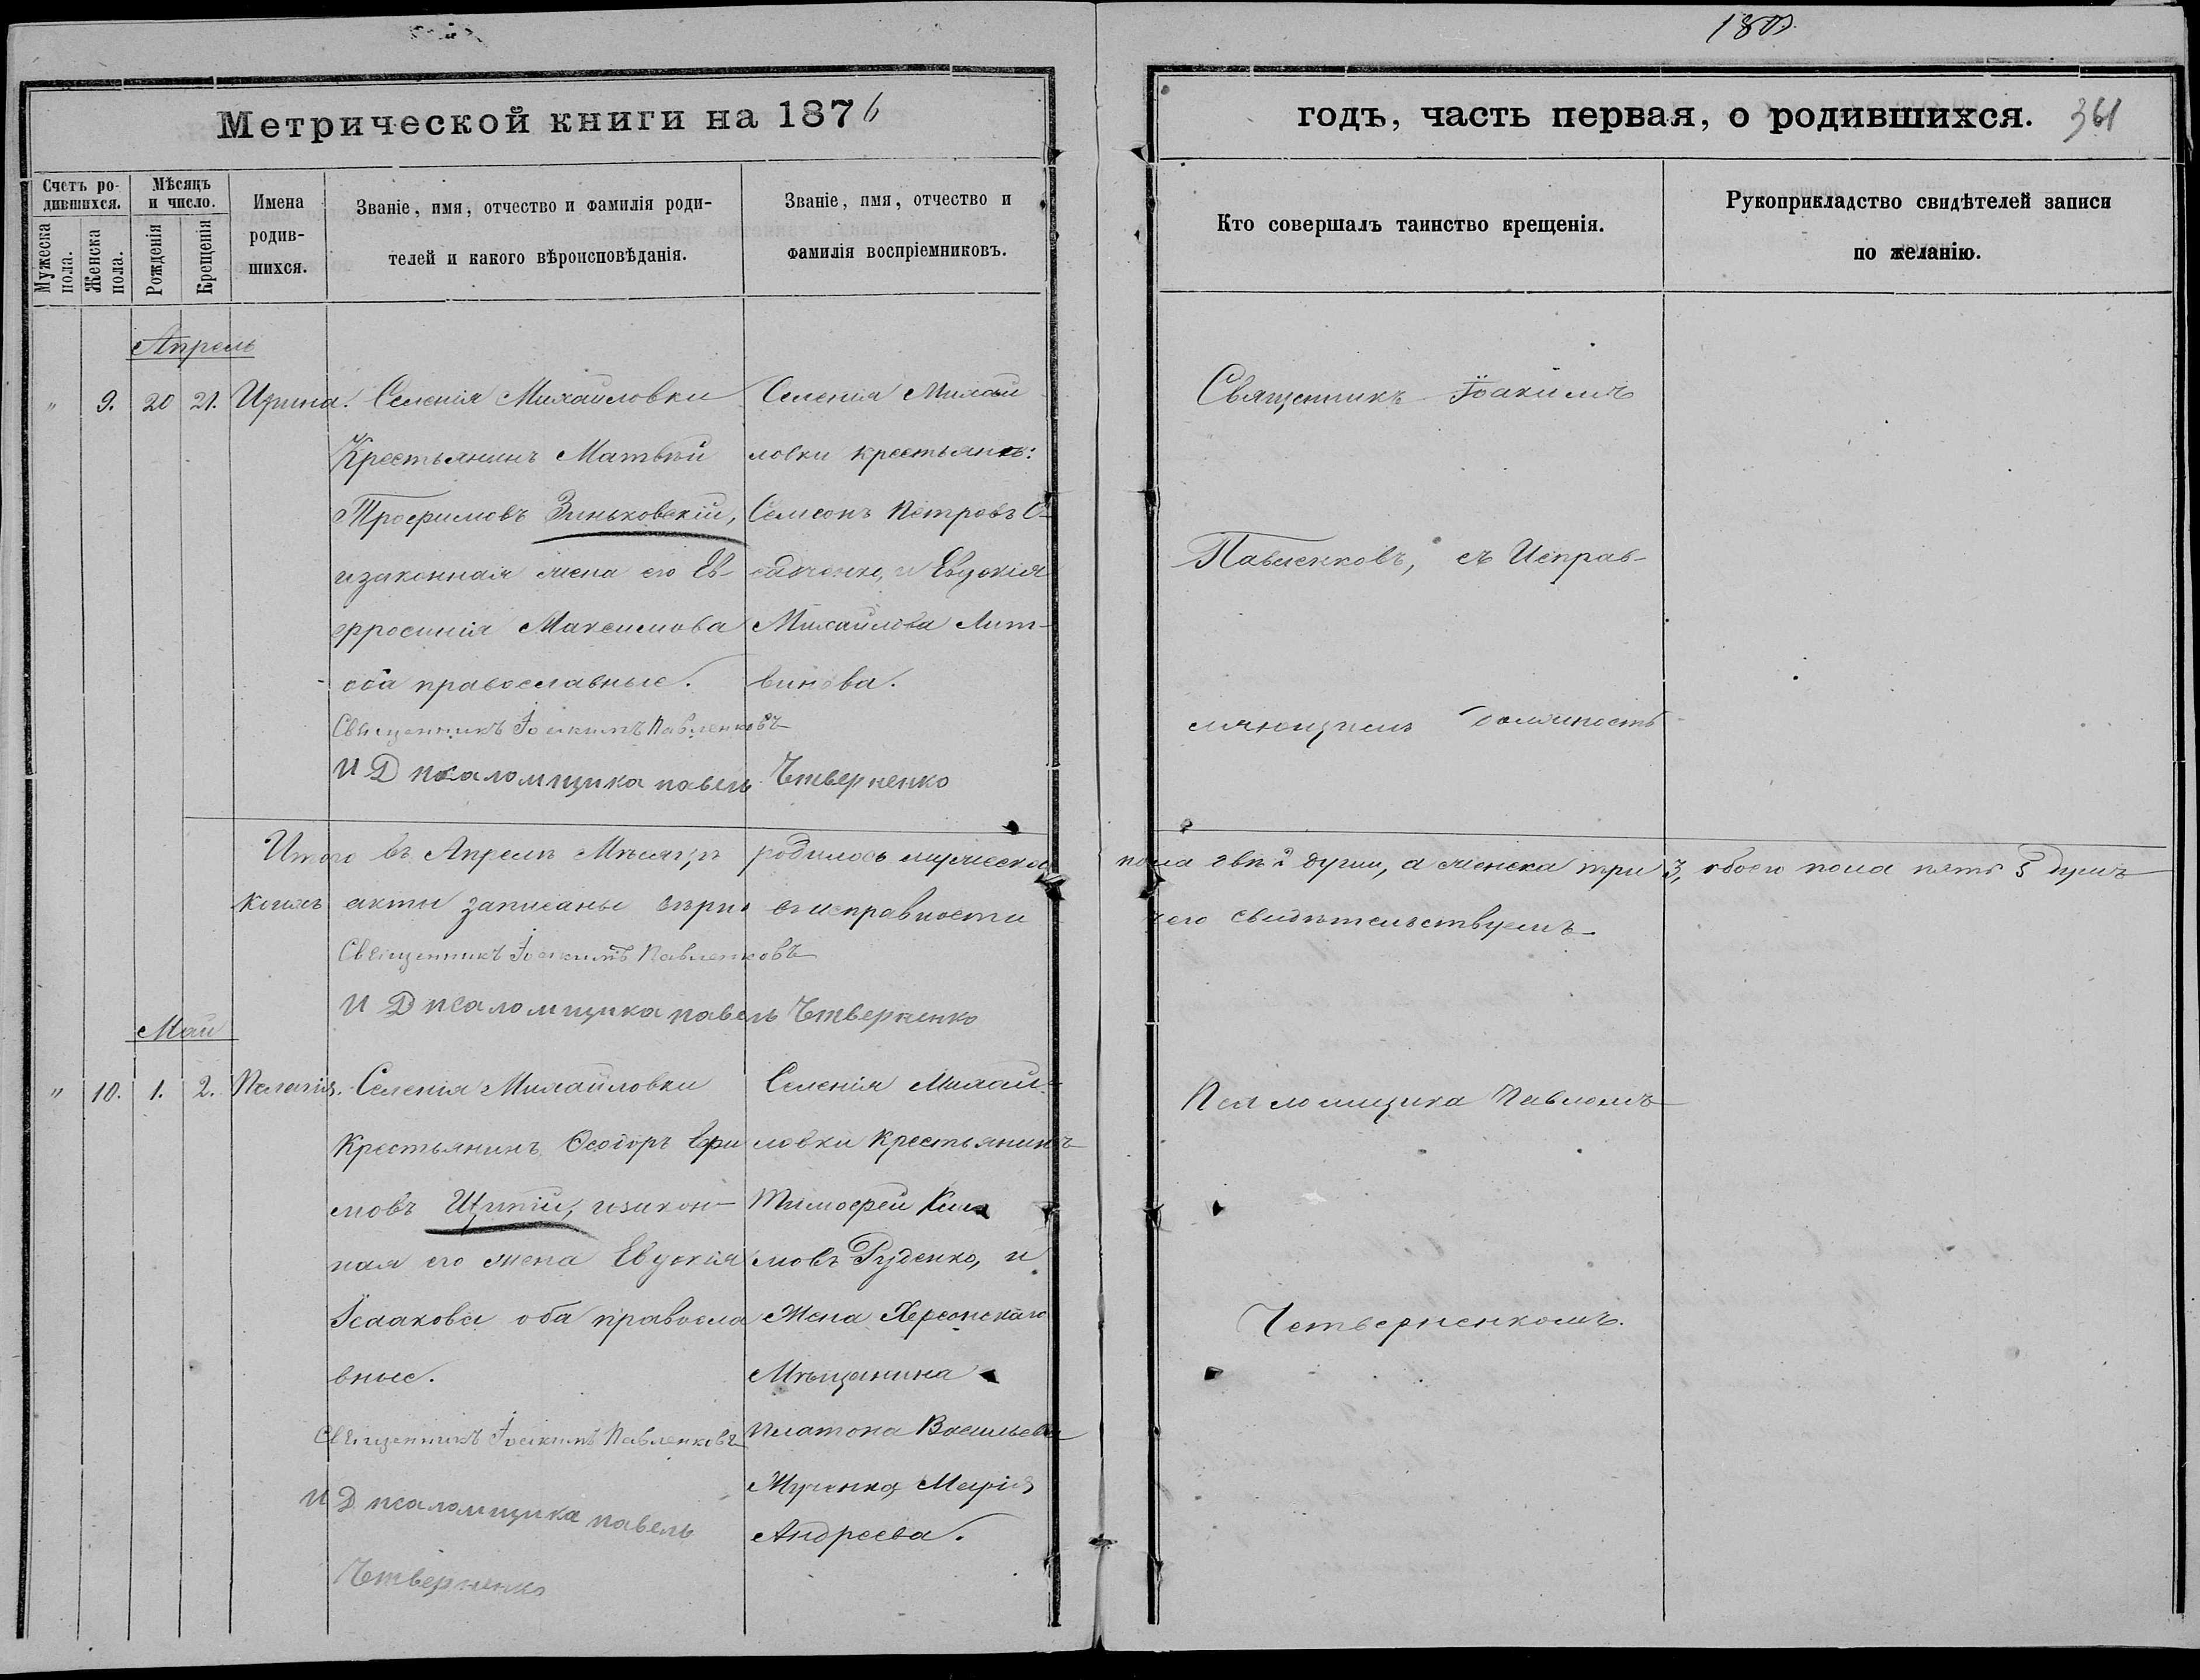 Метрической книги на 1876
годъ, часть первая, о родившихся. 361
Счетъ родившихся.
Мужеска пола.
Женска пола.
Мѣсяцъ и число.
Рожденія
Крещенія
Имена родившихся.
Званіе, имя, отчество и фамилія роди-
телей и какого вѣроисповѣданія.
Званіе, имя, отчество и
фамилія воспріемниковъ.
Кто совершалъ таинство крещенія.
Рукоприкладство свидѣтелей записи
по желанію.
Апрель
" 9. 20 21. Ирина.
Селенія Михайловки
Крестьянинъ Матвѣй
Трофимовъ Зиньковскій,
и законная жена его Ев-
фросинія Максимова
оба православные.
Селенія Михай
ловки крестьян:
Самсонъ Петровъ
и Евдокія
Михайлова Лит-
винова.
Священникъ Іоакимъ
Павленковъ, съ Исправ-
ляющимъ должность
Священникъ Іоакимъ Павленковъ
И Д псаломщика павелъ Четверненко
Итого въ Апрелѣ Мѣсяцѣ родилось мужеска пола двѣ 2 души, а женска три 3, обоего пола пять 5 душъ
коихъ акты записаны вѣрно въ исправности чего свидѣтельствуемъ
Священникъ Іоакимъ Павленковъ
И Д псаломщика павелъ Четверненко
Май
" 10. 1. 2. Пелагія.
Селенія Михайловки
Крестьянинъ Ѳеодоръ Ефи
мовъ Щитій, и закон-
ная его жена Евдокія
Ісаакова оба правосла
вные.
Селенія Михай-
ловки Крестьянинъ
Тимофей
мовъ Руденко, и
Жена Херсонскаго
Мѣщанина
Платона Васильева
Марія
Андреева.
Псаломщика Павломъ
Четверненкомъ.
Священникъ Іоакимъ Павленковъ
И Д псаломщика павелъ
Четверненко